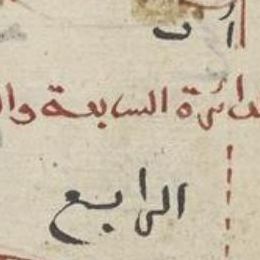 دائرة السابعة وا
الرابع